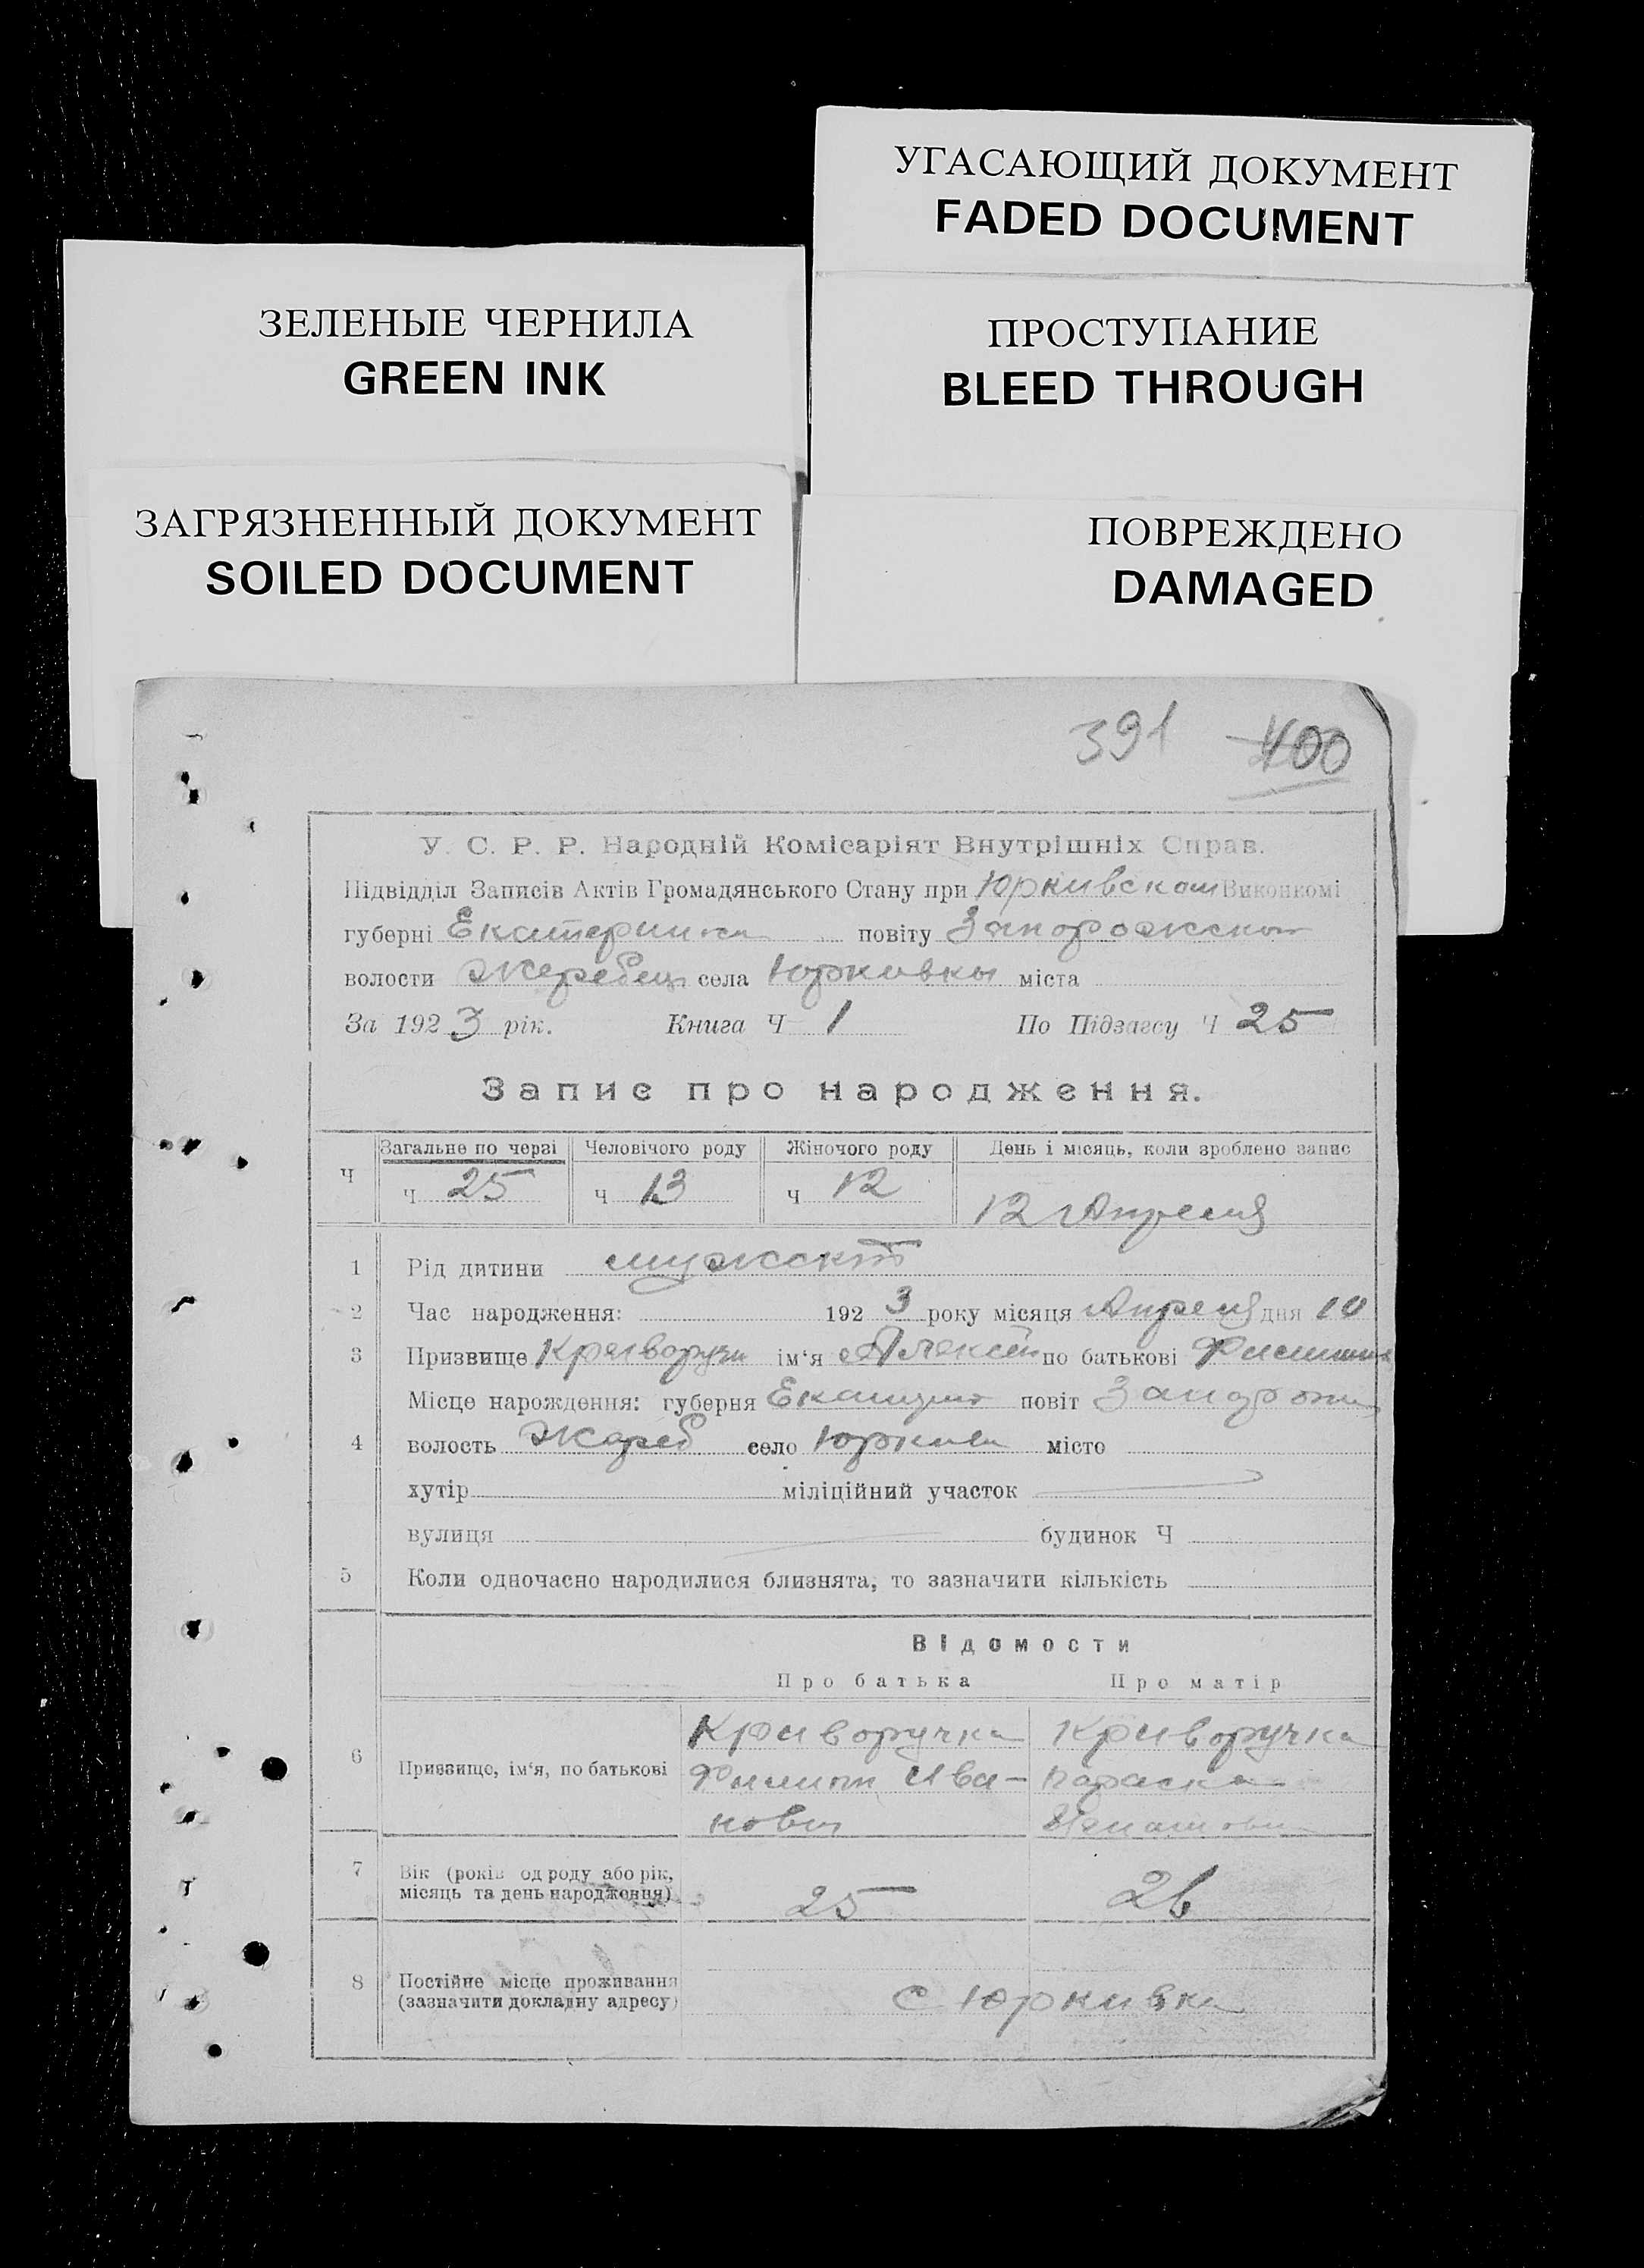 УГАСАЮЩИЙ ДОКУМЕНТ
FADED DOCUMENT
ЗЕЛЕНЫЕ ЧЕРНИЛА
GREEN INK
ПРОСТУПАНИЕ
BLEED THROUGH
ЗАГРЯЗНЕННЫЙ ДОКУМЕНТ
SOILED DOCUMENT
ПОВРЕЖДЕНО
DAMAGED
391 400
У. С. Р. Р. Народній Комісаріят Внутрішніх Справ.
Підвідділ Записів Актів Громадянського Стану при Юркивском Виконкомі
губерні повіту Запорожском
волости Жеребец села Юркивки міста
За 1923 рік. Книга Ч 1 По Підзагсу Ч 25
Запис про народження.
Загальне по черзі Человічого роду Жіночого роду День і місяць, коли зроблено запис
Ч ч 25 ч 13 ч 12 12 Апреля
1 Рід дитини мужской
2 Час народження: 1923 року місяця Апреля дня 10
3 Призвище ім‘я Алексей по батькові
Місце нарождення: губерня повіт
4 волость Жереб село місто
хутір міліційний участок
вулиця будинок Ч
5 Коли одночасно народилися близнята, то зазначити кількість
Відомости
Про батька Про матір
Криворучка Криворучка
6 Призвище, ім‘я, по батькові Филип Ива- Параска
нович
7 Вік (років од роду або рік,
місяць та день народження) 25 26
8 Постійне місце проживання
(зазначити докладну адресу) с Юркивка